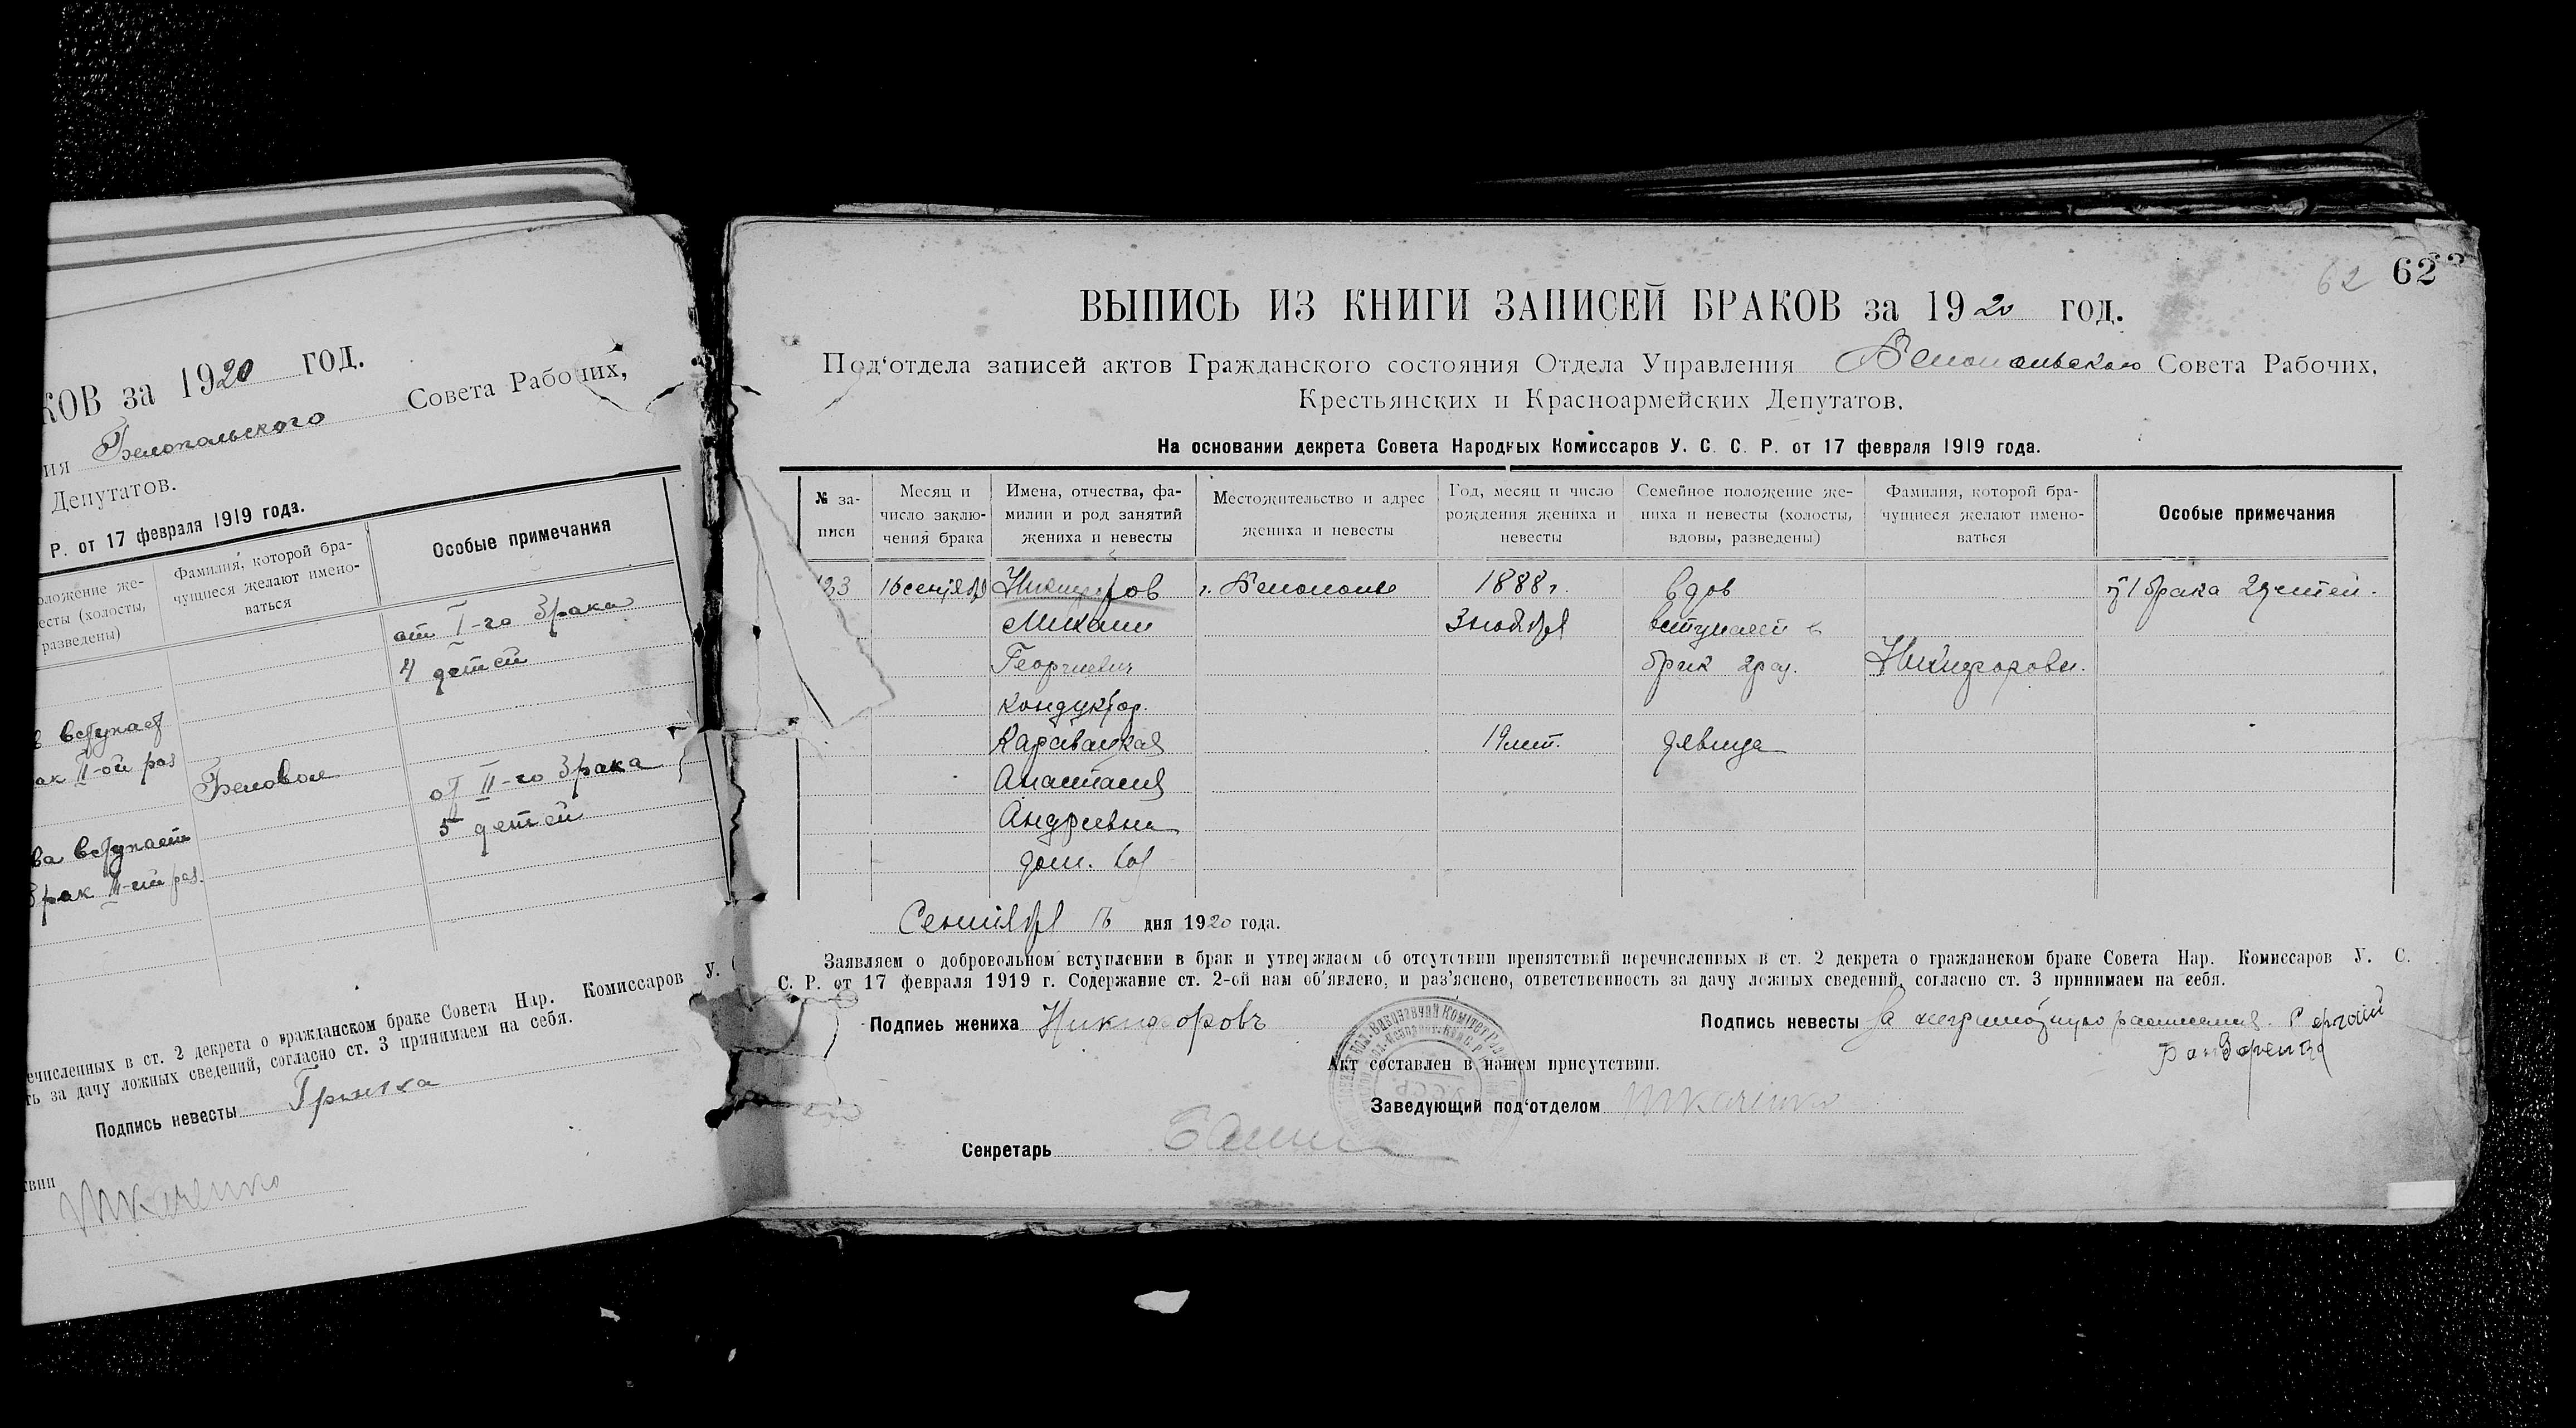 КОВ за 1920 год.
ия Белопольского Совета Рабочих,
Депутатов.
Р. от 17 февраля 1919 года.
оложение же-
есты (холосты,
разведены)
Фамилия, которой бра-
чущиеся желают имено-
ваться
Особые примечания
от I-го брака
4 детей
вступает
ак II-ой раз
Беловои
от II-го брака
5 детей
ва вступает
брак раз.
ечисленных в ст. 2 декрета о гражданском браке Совета Нар. Комиссаров У.
ть за дачу ложных сведений, согласно ст. 3 принимаем на себя.
Подпись невесты
твии Ткаченко
62 62
ВЫПИСЬ ИЗ КНИГИ ЗАПИСЕЙ БРАКОВ за 1920 год.
Под‘отдела записей актов Гражданского состояния Отдела Управления Белопольского Совета Рабочих,
Крестьянских и Красноармейских Депутатов.
На основании декрета Совета Народных Комиссаров У. С. С. Р. от 17 февраля 1919 года.
№ за-
писи
Месяц и
число заклю-
чения брака
Имена, отчества, фа-
милии и род занятий
жениха и невесты
Местожительство и адрес
жениха и невесты
Год, месяц и число
рождения жениха и
невесты
Семейное положение же-
ниха и невесты (холосты,
вдовы, разведены)
Фамилия, которой бра-
чущиеся желают имено-
ваться
Особые примечания
16 сентября Никифоров г. Белополье 1888 г. вдов 1 брака 2 детей.
Михаил 3 ноября вступает в
Георгиевич брак 2 раз. Никифоровы.
кондуктор.
19 лет. девица
Анастасия
Андреевна
дом. хоз
Сентября 16 дня 1920 года.
Заявляем о добровольном вступлении в брак и утверждаем об отсутствии препятствий перечисленных в ст. 2 декрета о гражданском браке Совета Нар. Комиссаров У. С.
С. Р. от 17 февраля 1919 г. Содержание ст. 2-ой нам об‘явлено, и раз‘яснено, ответственность за дачу ложных сведений, согласно ст. 3 принимаем на себя.
Подпись жениха Никифоровъ
Подпись невесты За неграмотную
Бондаренко
Акт составлен в нашем присутствии.
Заведующий под‘отделом Ткаченко
Секретарь